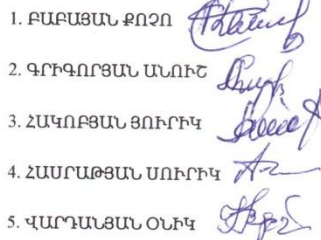 1. ԲԱԲԱՅԱՆ ՔՈՉՈ
2. ԳՐԻԳՈՐՅԱՆ ԱՆՈՒՇ
3. ՀԱԿՈԲՅԱՆ ՅՈՒՐԻԿ
4. ՀԱՍՐԱԹՅԱՆ ՍՈՒՐԻԿ
5. ՎԱՐԴԱՆՅԱՆ ՕՆԻԿ